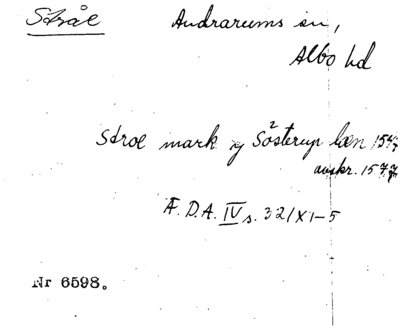 Stråe Andrarums sn,
Albo hd
Stroe mark y Sösterup læn 1547
avskr. 1577
Æ. D. A. IV s. 32/XI-5
Nr 6598.